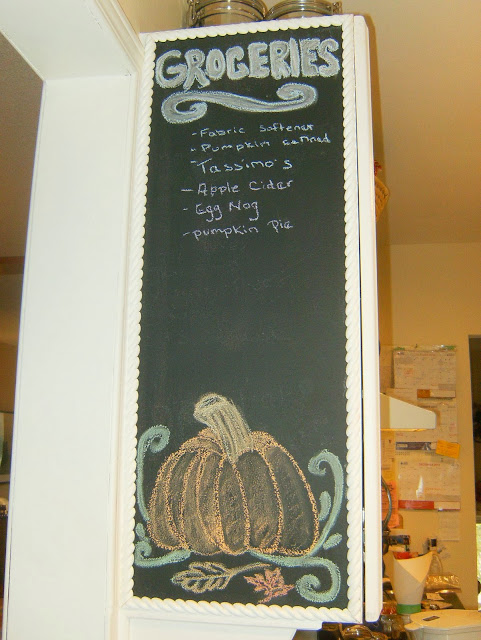 GROCERIES
- Fabric Softener
- Pumpkin canned
Tassimo's
- Apple Cider
- Egg Nog
- pumpkin Pie